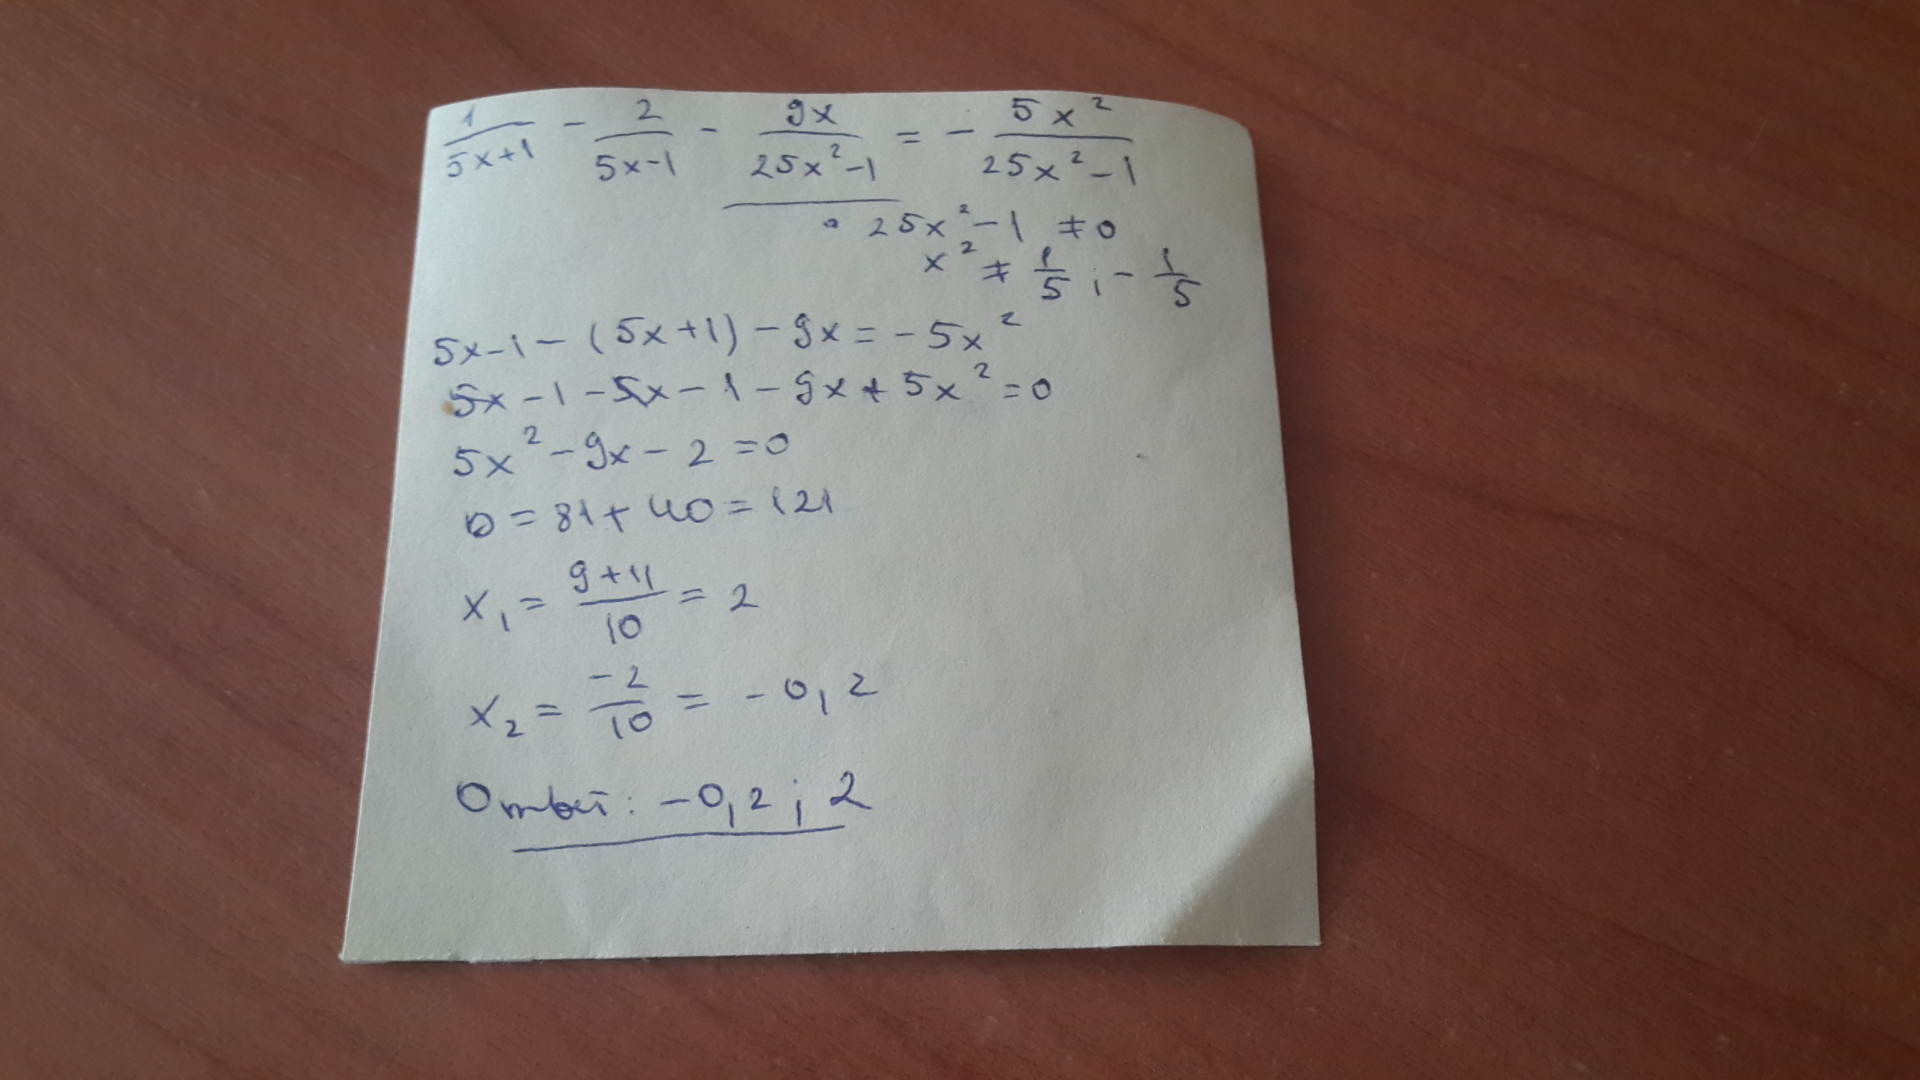 1/(5x+1) - 2/(5x-1) - 9x/(25x²-1) = - 5x²/(25x²-1)
25x²-1 ≠ 0
x² ≠ 1/5 ; - 1/5
5x-1-(5x+1)-9x=-5x²
5x-1-5x-1-9x+5x²=0
5x²-9x-2=0
D=81+40=121
x₁ = (9+11)/10 = 2
x₂ = -2/10 = -0,2
Ответ: -0,2 ; 2